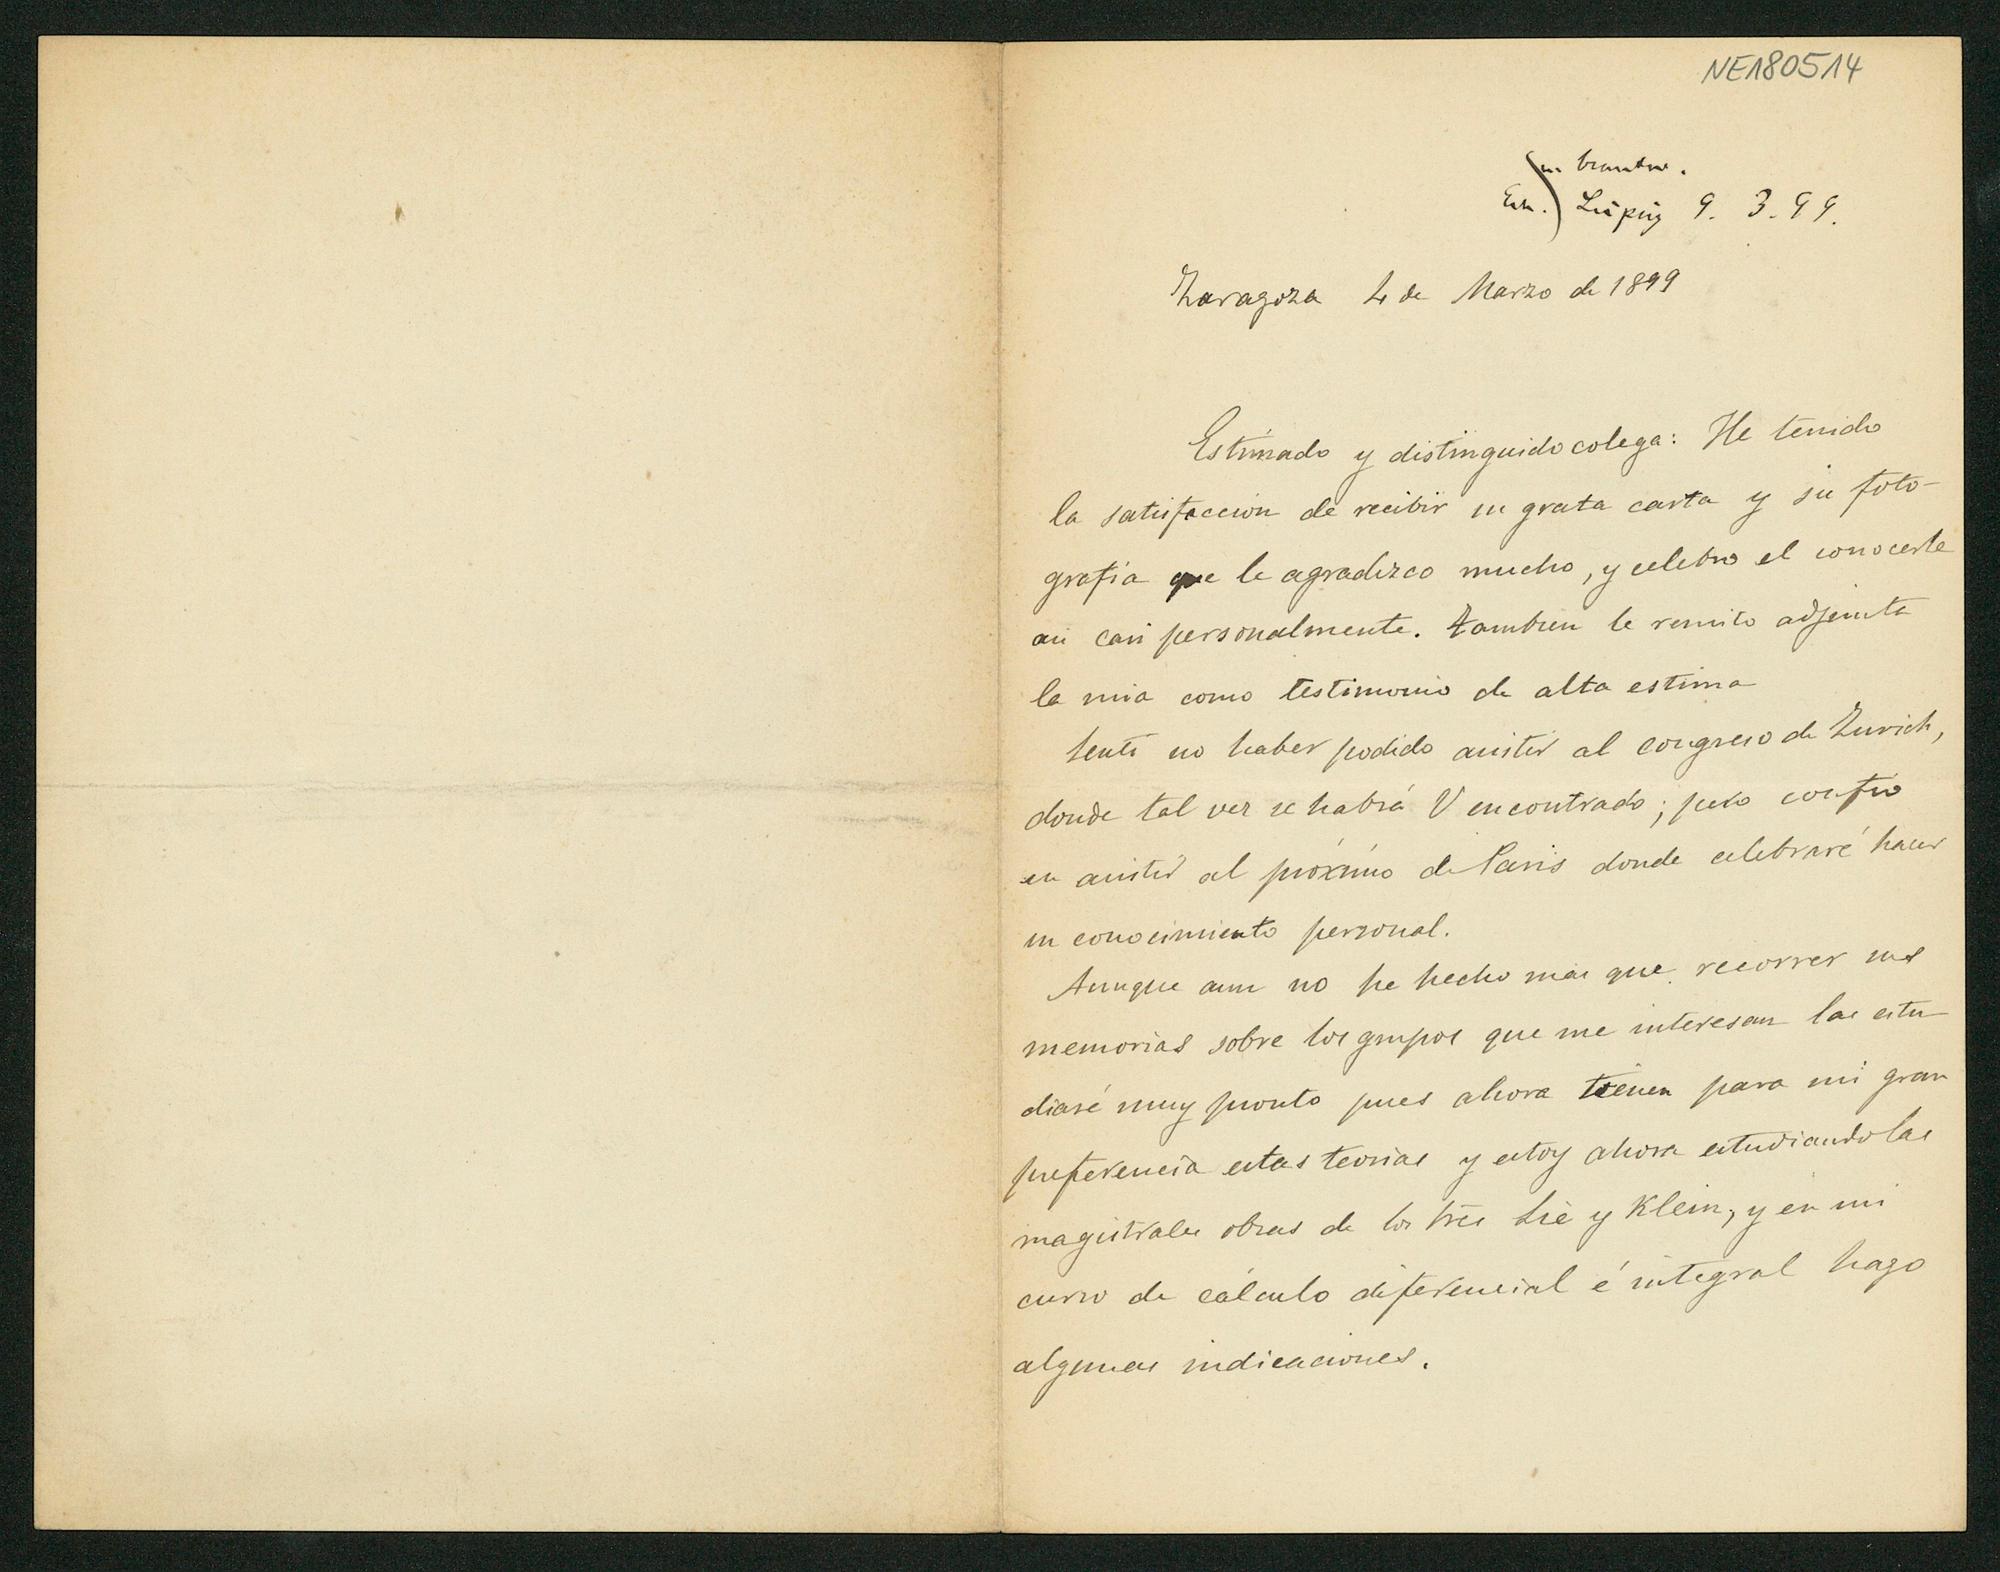 NE180514
u. beantw.
Erh. Leipzig 9. 3. 99.
Zaragoza 4 de Marzo de 1899
Estimado y distinguido colega: He tenido
la satisfaccion de recibir su grata carta y su foto-
grafia que le agradezco mucho, y celebro el conocerle
asi casi personalmente. Tambien le remito adjunta
la mia como testimonio de alta estima
Senti no haber podido asistir al congreso de Zurich,
donde tal vez se habrá V encontrado; pero confio
en asistir al próximo de Paris donde celebraré hacer
su conocimiento personal.
Aunque aun no he hecho mas que recorrer sus
memorias sobre los grupos que me interesan las estu-
diaré muy pronto pues ahora tienen para mi gran
preferencia estas teorias y estoy ahora estudiando las
magistrales obras de los Lie y Klein, y en mi
curso de cálculo diferencial é integral hago
algunas indicaciones.